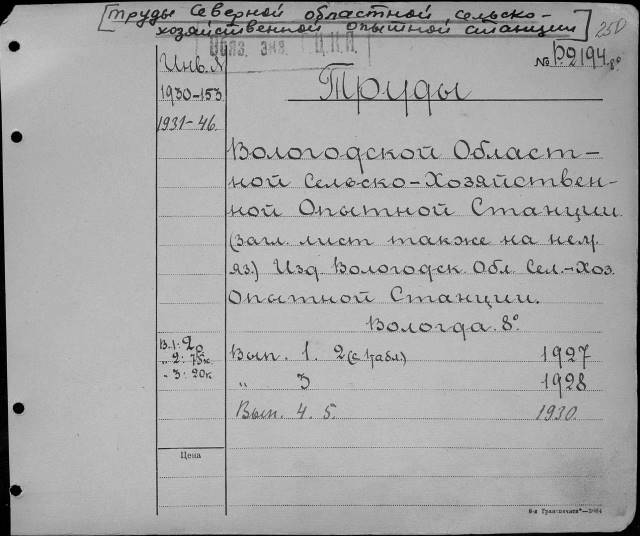 [Труды Северной областной сельско-
хозяйственной опытной станции]
25D
Обяз. экз. Ц.К.П.
Инв. №
№ P2194 8°
1930-153
Труды
1931-46.
Вологодской Област-
ной Сельско-Хозяйствен-
ной Опытной Станции
(загл. лист также на нем.
яз.) Изд. Вологодск. Обл. Сел.-Хоз.
Опытной Станции.
Вологда. 8°
В.1: 2р
Вып. 1. 2 (с 1 табл.) 1927
„ 2: 75к.
„ 3: 20к
„ 3 1928
Вып. 4. 5. 1930.
Цена